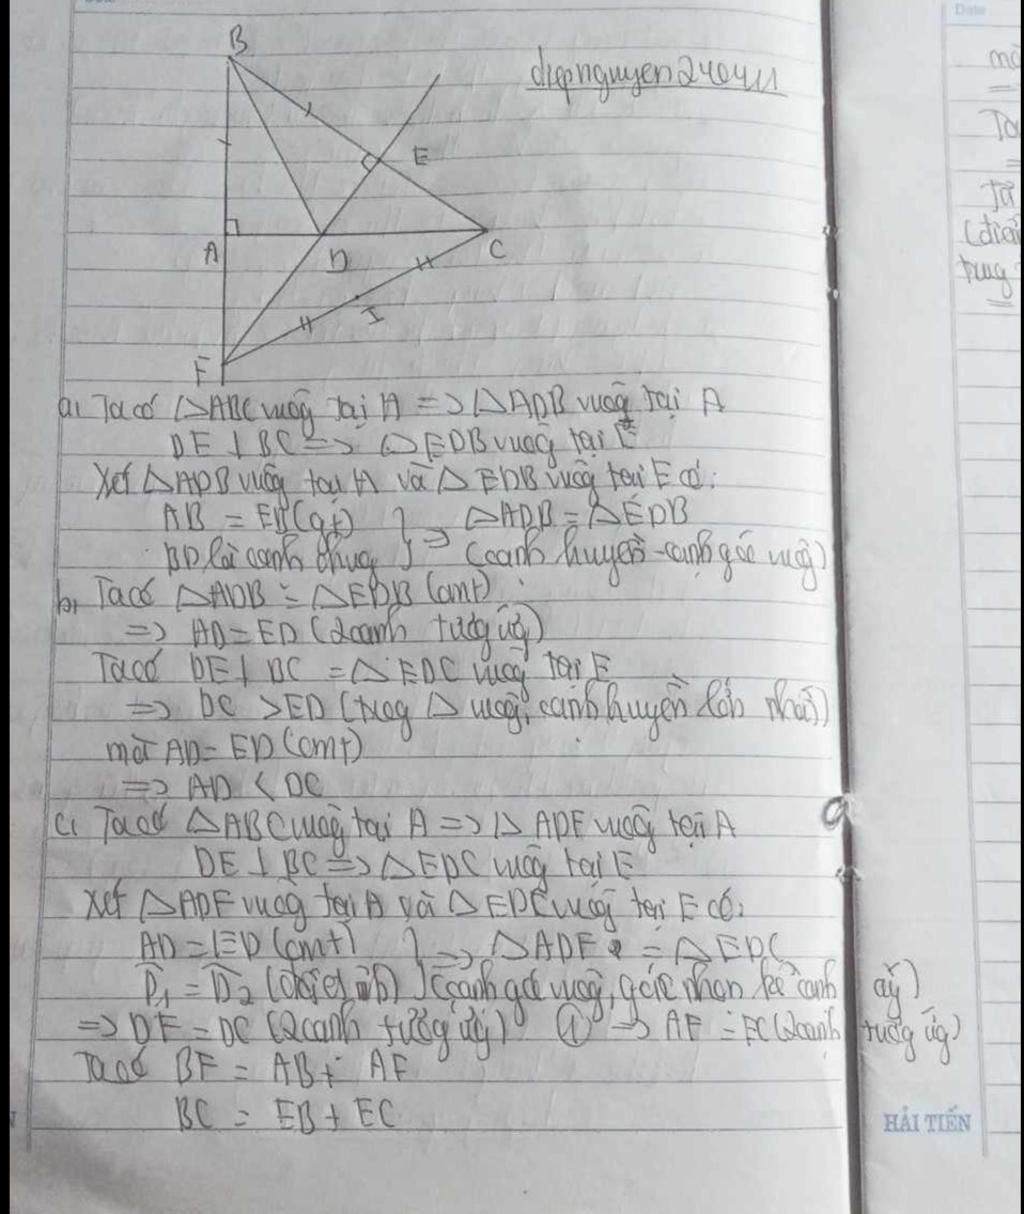 Date
B
diepnguyen240411
E
A
D
C
I
F
a, Ta có △ABC vuôg tại A => △ADB vuôg tại A
DE ⊥ BC => △EDB vuôg tại E
Xét △ADB vuôg tại A và △EDB vuôg tại E có:
AB = EB (gt)
BD là cạnh chug
} => △ADB = △EDB
(cạnh huyền - cạnh góc vuôg)
b, Ta có △ADB = △EDB (cmt)
=> AD = ED (2 cạnh tươg ứg)
Ta có DE ⊥ BC = △EDC vuôg tại E
=> DC > ED (trog △ vuôg, cạnh huyền lớn nhất)
mà AD = ED (cmt)
=> AD < DC
c, Ta có △ABC vuôg tại A => △ADF vuôg tại A
DE ⊥ BC => △EDC vuôg tại E
Xét △ADF vuôg tại A và △EDC vuôg tại E có:
AD = ED (cmt) } => △ADF = △EDC
D1 = D2 (đối đỉnh) (cạnh góc vuôg, góc nhọn kề cạnh ấy)
=> DF = DC (2 cạnh tươg ứg) ① => AF = EC (2 cạnh tươg ứg)
Ta có BF = AB + AF
BC = EB + EC
HẢI TIẾN
Date
Ta
Từ
trug